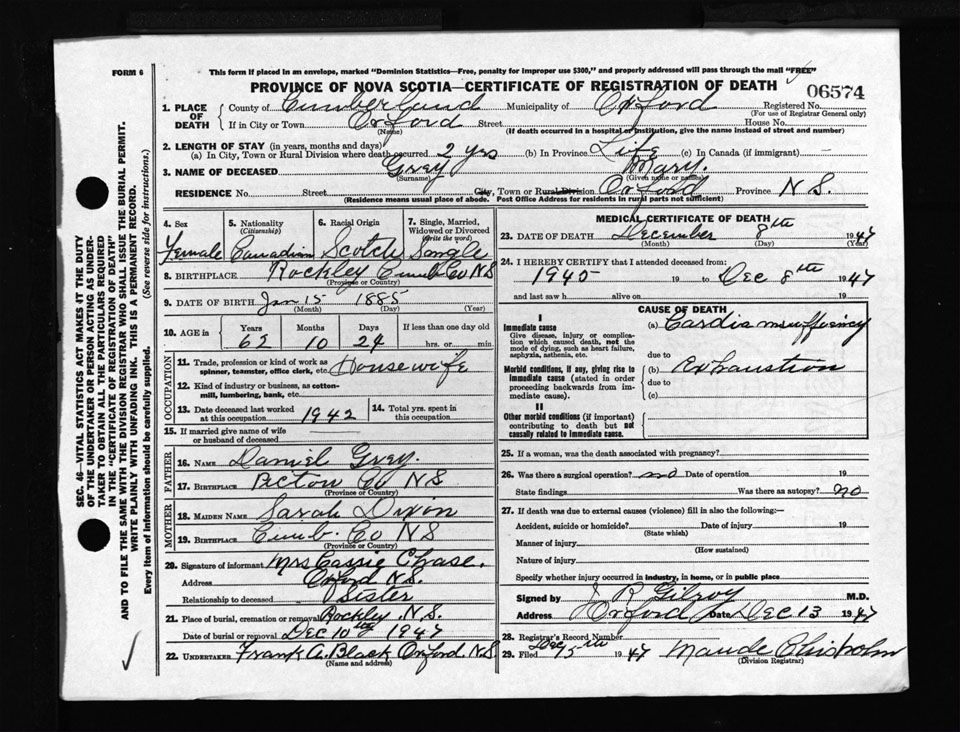 FORM 6
This form if placed in an envelope, marked "Dominion Statistics—Free, penalty for improper use $300," and properly addressed will pass through the mail "FREE"
PROVINCE OF NOVA SCOTIA—CERTIFICATE OF REGISTRATION OF DEATH
06574
1. PLACE OF DEATH
County of Cumberland Municipality of Oxford Registered No.
(For use of Registrar General only)
If in City or Town Oxford Street House No.
(Name) (If death occurred in a hospital or institution, give the name instead of street and number)
2. LENGTH OF STAY (in years, months and days)
(a) In City, Town or Rural Division where death occurred 2 yrs (b) In Province Life (c) In Canada (if immigrant) —
3. NAME OF DECEASED Grey Mary.
(Surname) (Given name or names)
RESIDENCE No. Street City, Town or Rural Division Oxford Province N S.
(Residence means usual place of abode. Post Office Address for residents in rural parts not sufficient)
4. Sex Female
5. Nationality (Citizenship) Canadian
6. Racial Origin Scotch
7. Single, Married, Widowed or Divorced (Write the word) Single
8. BIRTHPLACE Rockley Cumb Co N S
(Province or Country)
9. DATE OF BIRTH Jan 15 1885
(Month) (Day) (Year)
10. AGE in Years Months Days If less than one day old
62 10 24 hrs. or min.
OCCUPATION
11. Trade, profession or kind of work as spinner, teamster, office clerk, etc. Housewife
12. Kind of industry or business, as cotton-mill, lumbering, bank, etc.
13. Date deceased last worked at this occupation 1942
14. Total yrs. spent in this occupation
15. If married give name of wife or husband of deceased
FATHER
16. NAME Daniel Grey.
17. BIRTHPLACE Pictou Co N S
(Province or Country)
MOTHER
18. MAIDEN NAME Sarah Dixon
19. BIRTHPLACE Cumb. Co N S
(Province or Country)
20. Signature of informant Mrs Cassie Chase.
Address Oxford N.S.
Relationship to deceased Sister
21. Place of burial, cremation or removal Rockley N.S.
Date of burial or removal Dec 10th 1947
22. UNDERTAKER Frank A. Black Oxford. N.S
(Name and address)
MEDICAL CERTIFICATE OF DEATH
23. DATE OF DEATH December 8th 1947
(Month) (Day) (Year)
24. I HEREBY CERTIFY that I attended deceased from:
1945 19 to Dec 8th 1947
and last saw h alive on 19
CAUSE OF DEATH
I
Immediate cause
Give disease, injury or complication which caused death, not the mode of dying, such as heart failure, asphyxia, asthenia, etc.
(a) Cardia
due to
Morbid conditions, if any, giving rise to immediate cause (stated in order proceeding backwards from immediate cause).
(b) Exhaustion
due to
(c)
II
Other morbid conditions (if important) contributing to death but not causally related to immediate cause.
25. If a woman, was the death associated with pregnancy?
26. Was there a surgical operation? no Date of operation 19
State findings Was there an autopsy? no
27. If death was due to external causes (violence) fill in also the following:—
Accident, suicide or homicide? Date of injury 19
(State which)
Manner of injury
(How sustained)
Nature of injury
Specify whether injury occurred in industry, in home, or in public place
Signed by J R Gilroy M.D.
Address Oxford Date Dec 13 1947
28. Registrar's Record Number
29. Filed Dec 15th 1947 Maude Chisholm
(Division Registrar)
SEC. 46—VITAL STATISTICS ACT MAKES IT THE DUTY
OF THE UNDERTAKER OR PERSON ACTING AS UNDER-
TAKER TO OBTAIN ALL THE PARTICULARS REQUIRED
IN THE "CERTIFICATE OF REGISTRATION OF DEATH"
AND TO FILE THE SAME WITH THE DIVISION REGISTRAR WHO SHALL ISSUE THE BURIAL PERMIT.
WRITE PLAINLY WITH UNFADING INK. THIS IS A PERMANENT RECORD.
Every item of information should be carefully supplied. (See reverse side for instructions.)